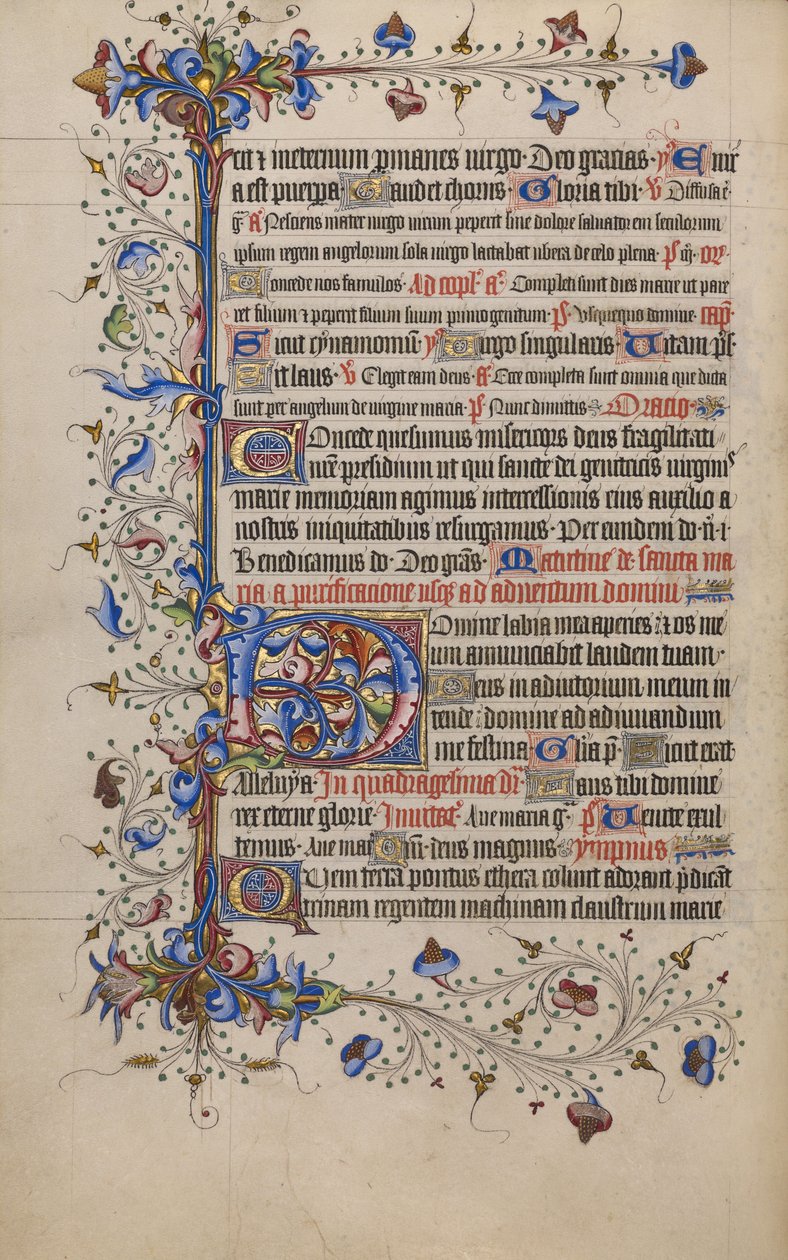 cit ⁊ ineternum ꝑmanes uirgo · Deo gracias · ℣ Enix
a est puerpa Gaudet chorus · Gloria tibi · ℣ Diffusa ē
gͬ a͛ Nesciens mater uirgo uirum peperit sine dolore saluatorem seculorum
ipsum regem angelorum sola uirgo lactabat ubera de celo plena · ps
Concede nos famulos · Ad cōpl͛ a͛ Completi sunt dies marie ut pare
ret filium ⁊ peperit filium suum primogenitum · ps · Usquequo domine · cap͛
Sicut cynamomū Uirgo singularis · Uitam p̄s
Sit laus · ℣ Elegit eam deus · a͛ Ecce completa sunt omnia que dicta
sunt per angelum de uirgine maria · ps Nunc dimittis Oracio ·
Concede quesumus misericors deus fragilitati
nr̄e presidium ut qui sancte dei genitricis uirginis
marie memoriam agimus intercessionis eius auxilio a
nostris iniquitatibus resurgamus · Per eundem do · n̄ · i ·
Benedicamus dō · Deo gr̄as · Matutine de sancta ma
ria a purificacione usqꝫ ad aduentum domini
Domine labia mea aperies · ⁊ os me
um annunciabit laudem tuam ·
Deus in adiutorium meum in
tende · domine ad adiuuandum
me festina · Gl̄ia p̄ · Sicut erat
Alleluya · In quadragesima dr̄ · Laus tibi domine
rex eterne glorie · Inuitat͛ · Aue maria gͬ · ps Uenite exul
temus · Aue mar Qm̄ · deus magnus · ympnus
Quem terra pontus ethera colunt adorant p̄dicāt
trinam regentem machinam claustrum marie